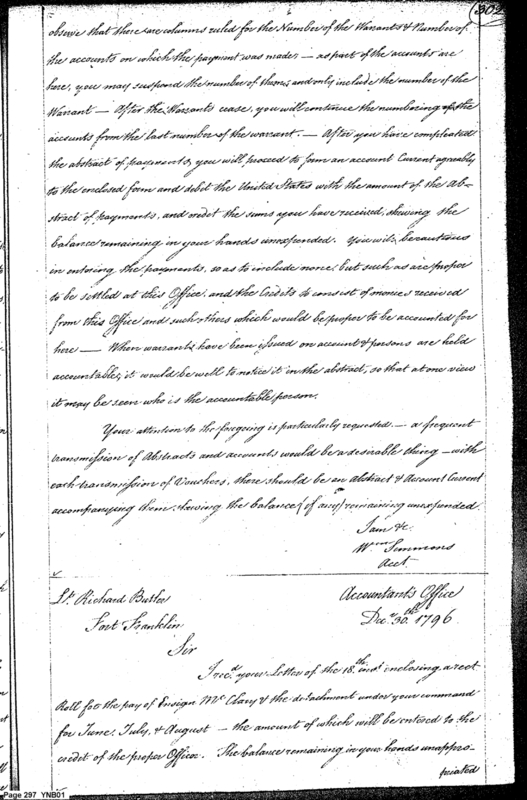 302
observe that there are columns ruled for the Number of the Warrants & Number of
the accounts on which the payment was made, — as part of the accounts are
here, you may suspend the number of them, and only include the number of the
Warrant — After the Warrants cease, you will continue the numbering of the
accounts from the last number of the warrant. — After you have compleated
the abstract of payments, you will proceed to form an account Current agreeably
to the enclosed form and debit the United States with the amount of the Ab-
stract of payments, and credit the sums you have received, shewing the
balance remaining in your hands unexpended. You will be cautious
in entering the payments, so as to include none, but such as are proper
to be settled at this Office, and the Credits to consist of monies received
from this Office and such others which would be proper to be accounted for
here — When warrants have been issued on account & persons are held
accountable, it would be well to notice it in the abstract, so that at one view
it may be seen who is the accountable person.
Your attention to the foregoing is particularly requested. — a frequent
transmission of Abstracts and accounts would be a desirable thing — with
each transmission of Vouchers, there should be an Abstract & Account Current
accompanying them, shewing the balance (if any) remaining unexpended.
I am &c.
Wm Simmons
Acct
Lt. Richard Butler
Fort Franklin
Accountant's Office
Decr 30th 1796
Sir
I recd your Letter of the 18th inst enclosing a rect
Roll for the pay of Ensign McClary & the detachment under your command
for June, July, & August — the amount of which will be entered to the
credit of the proper Officer. The balance remaining in your hands unappro-
priated
Page 297 YNB01